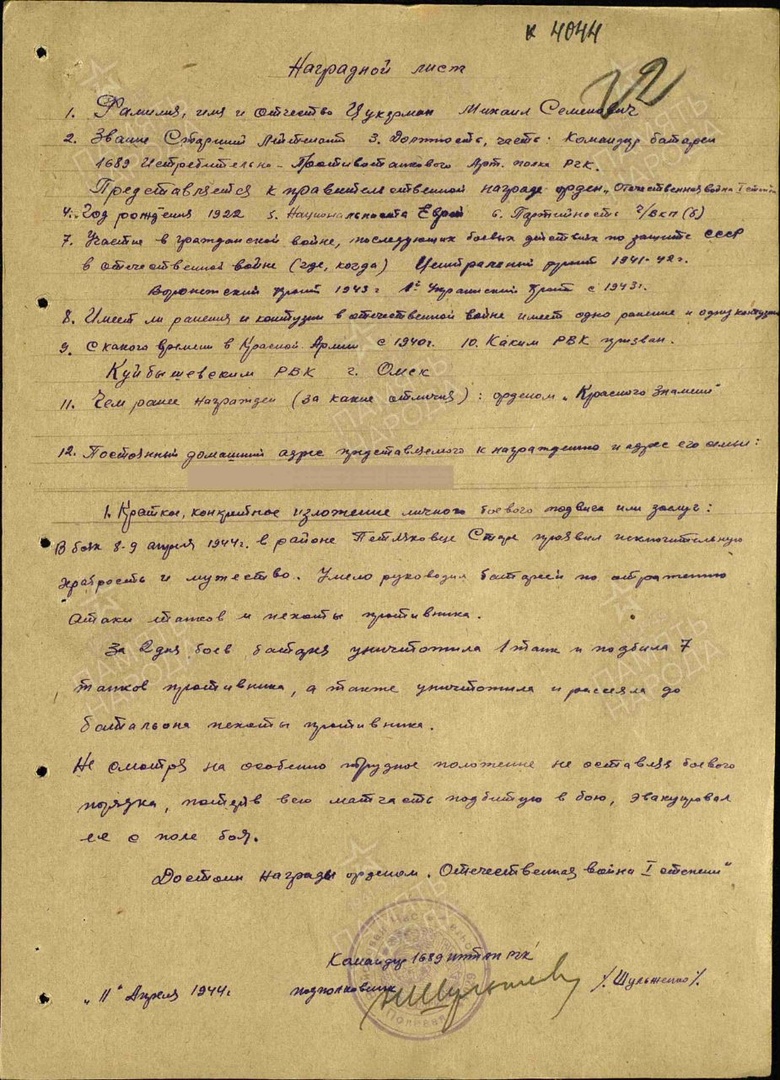 к 4044
Наградной лист
1. Фамилия, имя и отчество Цукерман Михаил Семенович
2. Звание Старший Лейтенант 3. Должность, часть: Командир батареи
1689 Истребительно-Противотанкового Арт. полка РГК.
Представляется к правительственной награде орден „Отечественная война I степени
4. Год рождения 1922 5. Национальность Еврей 6. Партийность ч/ВКП(б)
7. Участие в гражданской войне, последующих боевых действиях по защите СССР
в отечественной войне (где, когда) Центральный фронт 1941-42г.
Воронежский фронт 1943г 1й Украинский фронт с 1943г.
8. Имеет ли ранения и контузии в отечественной войне имеет одно ранение и одну контузию
9. С какого времени в Красной Армии с 1940г. 10. Каким РВК призван.
Куйбышевским РВК г. Омск
11. Чем ранее награжден (за какие отличия): орденом „Красного Знамени"
12. Постоянный домашний адрес представляемого к награждению и адрес его семьи:
1. Краткое, конкретное изложение личного боевого подвига или заслуг:
В боях 8-9 апреля 1944г. в районе Петликовце Старе проявил исключительную
храбрость и мужество. Умело руководил батареей по отражению
атаки танков и пехоты противника.
За 2 дня боев батарея уничтожила 1 танк и подбила 7
танков противника, а также уничтожила и рассеяла до
батальона пехоты противника.
Не смотря на особенно трудное положение не оставляя боевого
порядка, потеряв всю матчасть подбитую в бою, эвакуировал
ее с поле боя.
Достоин награды орденом „Отечественная война I степени"
Командир 1689 иптап РГК
„11" Апреля 1944г. подполковник /Шульженко/.